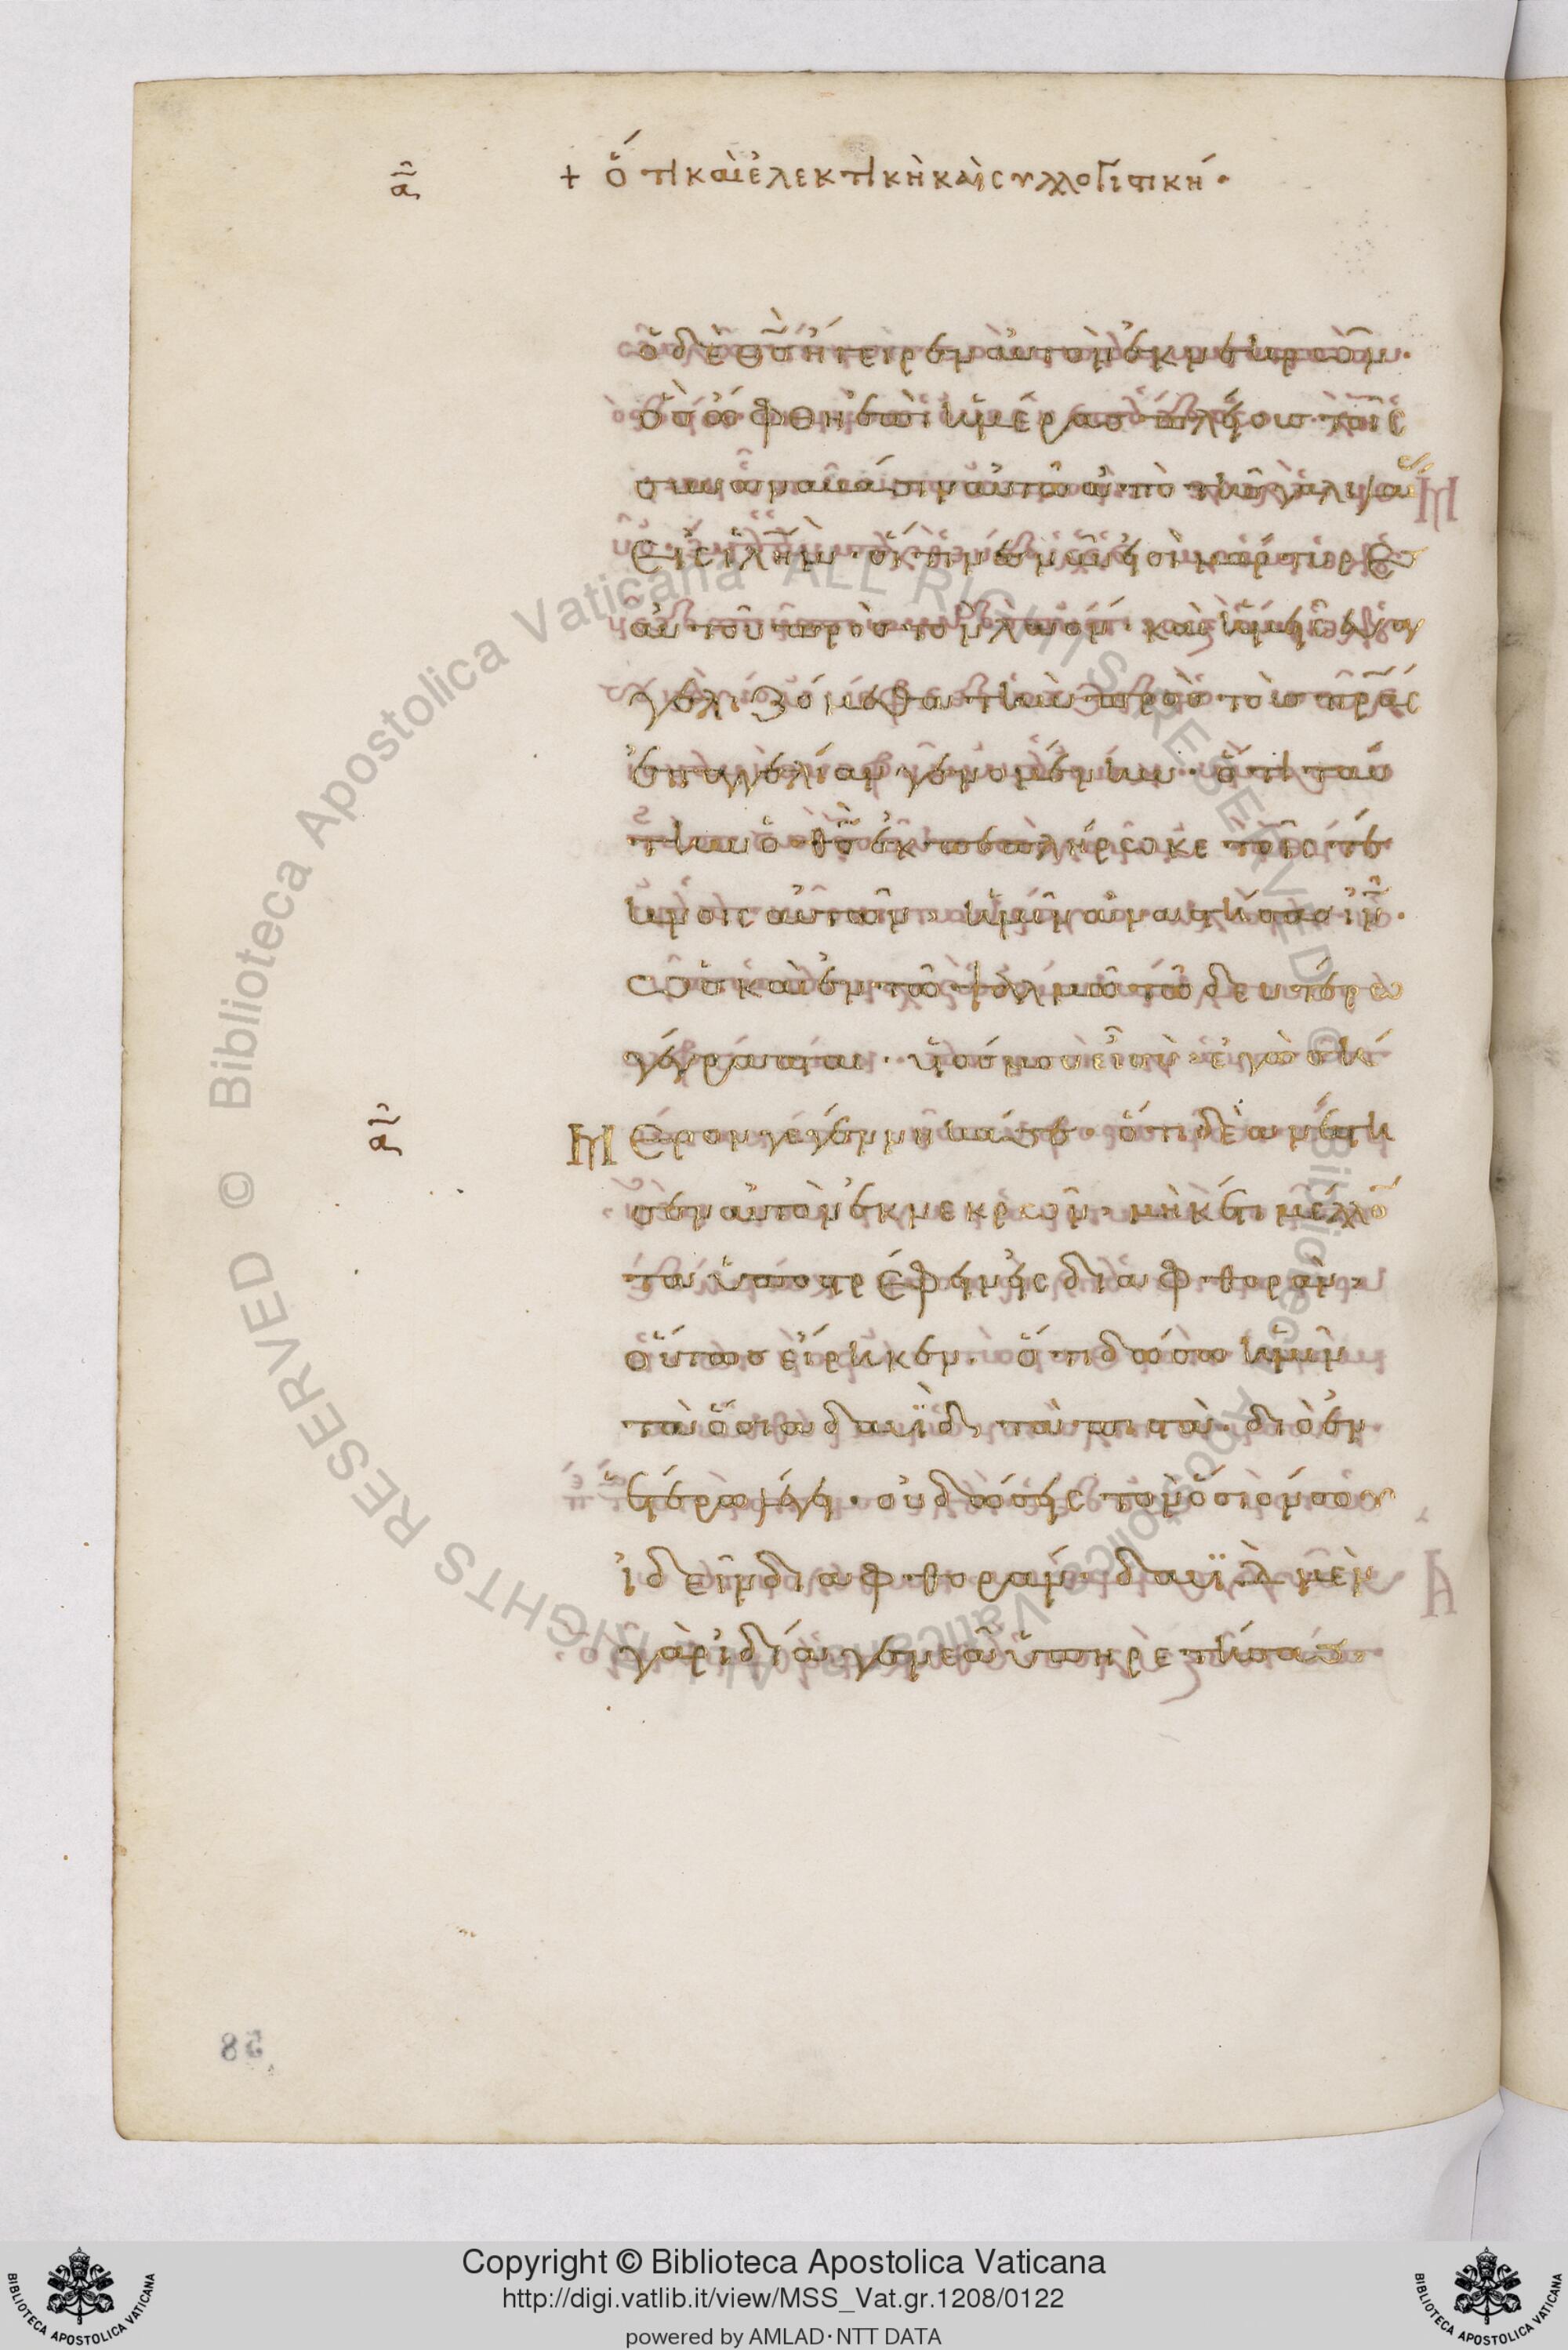 + ὅτι καὶ ἐλεκτικὴ καὶ συλλογιστική·
ὁ δὲ θσ ἤγειρεν αὐτὸν ἐκ νεκρῶν·
ὃσ ὤφθη ἐπὶ ἡμέρασ πλείουσ τοῖς
συναναβᾶσιν αὐτῶ ἀπὸ τῆσ γαλιλαίασ
εἰς ἱλημ· οἵτινεσ νῦν εἰσὶ μάρτυρεσ
αὐτοῦ πρὸσ τὸν λαόν· καὶ ἡμεῖς εὐαγ
γελιζόμεθα τὴν πρὸσ τοὺσ πρας
ἐπαγγελίαν γενομένην· ὅτι ταύ
την ὁ θσ ἐκπεπλήρωκε τοῖς τέ
κνοις αὐτῶν, ἡμῖν ἀναστήσασ ιν·
ὡσ καὶ ἐν τῶ ψαλμῶ τῶ δευτέρω
γέγραπται· υἱόσ μου εἶ σὺ· ἐγὼ σή
μερον γεγέννηκά σε· ὅτι δὲ ἀνέστη
σεν αὐτὸν ἐκ νεκρῶν, μηκέτι μέλλον
τα ὑποστρέφειν εἰς διαφθοράν,
οὕτωσ εἴρηκεν· ὅτι δώσω ὑμῖν
τὰ ὅσια δαυῒδ τὰ πιστὰ· διὸ ἐν
ἑτέρω λέγει· οὐ δώσεις τὸν ὅσιόν σου
ἰδεῖν διαφθοράν· δαυῒδ μὲν
γὰρ ἰδία γενεᾶ ὑπηρετήσασ
58
Copyright © Biblioteca Apostolica Vaticana
http://digi.vatlib.it/view/MSS_Vat.gr.1208/0122
powered by AMLAD·NTT DATA
BIBLIOTECA APOSTOLICA VATICANA
BIBLIOTECA APOSTOLICA VATICANA
© Biblioteca Apostolica Vaticana ALL RIGHTS RESERVED © Biblioteca Apostolica Vaticana ALL RIGHTS RESERVED